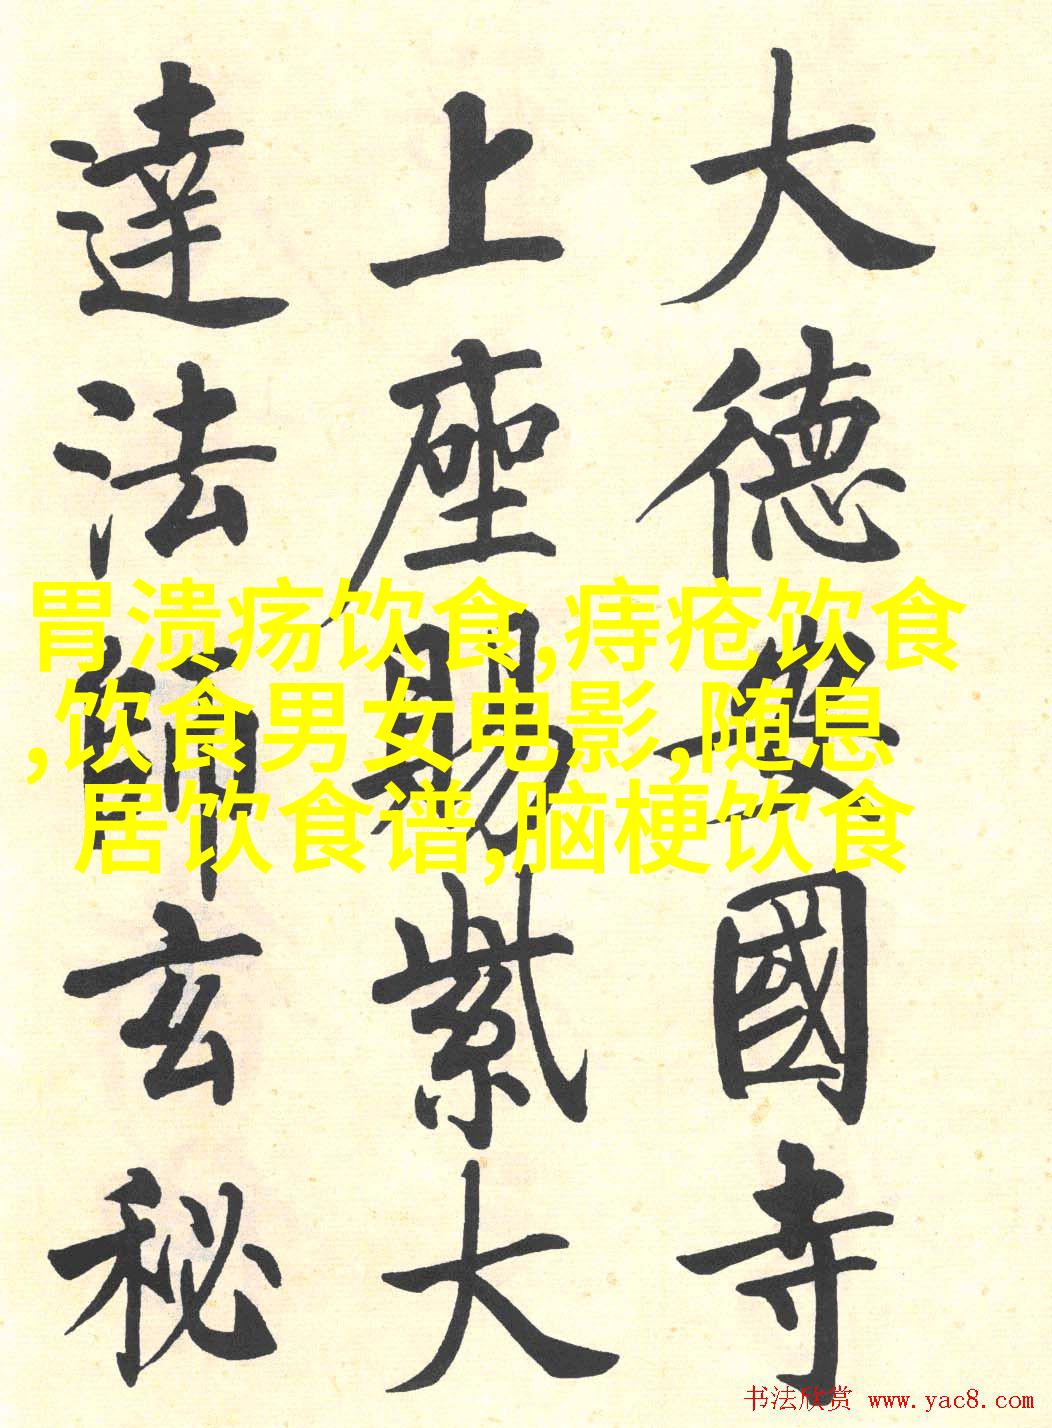 大德安國寺
上座賜紫大
達法師玄秘
胃溃疡饮食,痔疮饮食
,饮食男女电影,随息
居饮食谱,脑梗饮食
书法欣赏 www.yac8.com